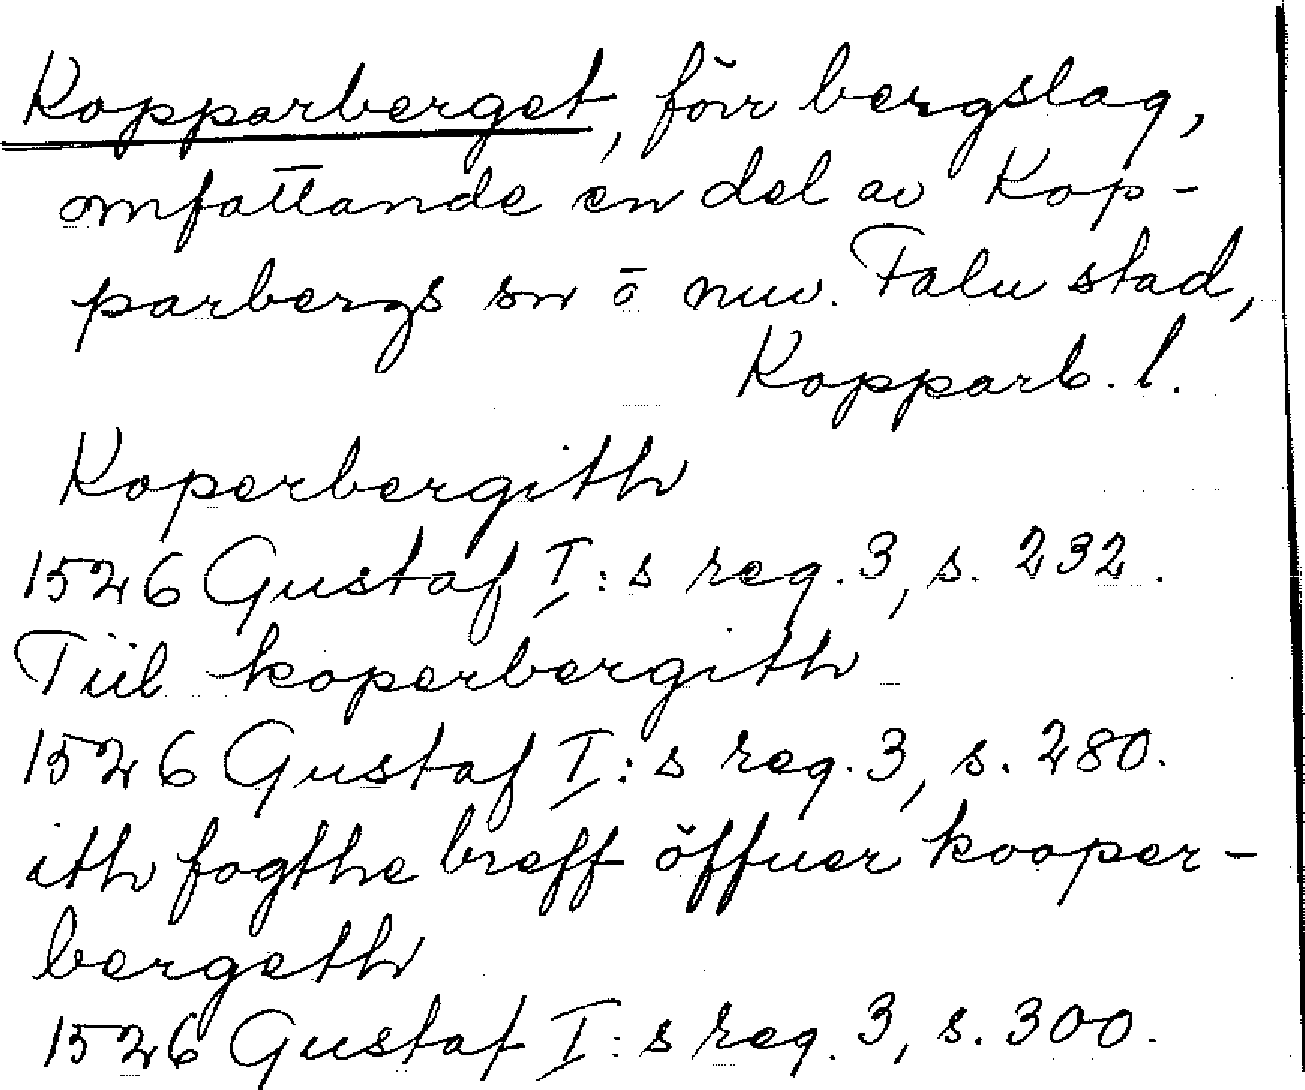 Kopparberget, förr bergslag,
omfattande en del av Kop-
parbergs sn o nuv. Falu stad,
Kopparb. l.
Koperbergith
1526 Gustaf I:s reg. 3, s. 232.
Tiil koperbergith
1526 Gustaf I:s reg. 3, s. 280.
ith fogthe breff öffuer kooper-
bergeth
1526 Gustaf I:s reg. 3, s. 300.